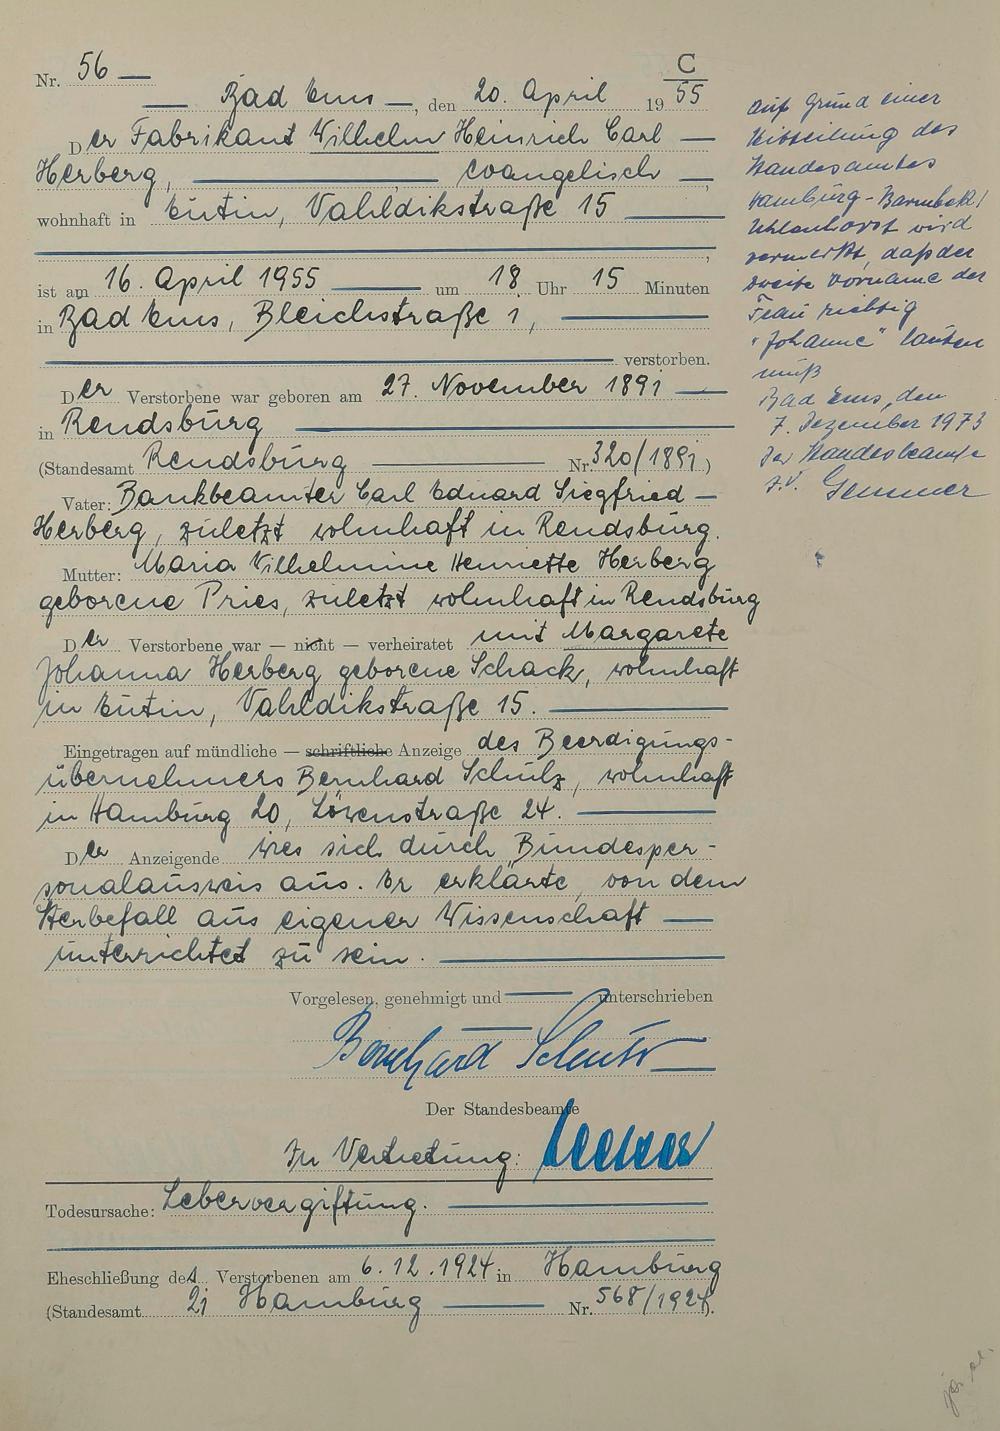 Nr. 56 —
C
— Bad Ems —, den 20. April 1955
Der Fabrikant Wilhelm Heinrich Carl —
Herberg, — evangelisch —,
wohnhaft in Eutin, Vahldikstraße 15 —
,
ist am 16. April 1955 — um 18 Uhr 15 Minuten
in Bad Ems, Bleichstraße 1, —
— verstorben.
Der Verstorbene war geboren am 27. November 1891 —
in Rendsburg —
(Standesamt Rendsburg — Nr. 320/1891)
Vater: Bankbeamter Carl Eduard Siegfried —
Herberg, zuletzt wohnhaft in Rendsburg.
Mutter: Maria Wilhelmine Henriette Herberg
geborene Pries, zuletzt wohnhaft in Rendsburg
Der Verstorbene war — nicht — verheiratet mit Margarete
Johanna Herberg geborene Schack, wohnhaft
in Eutin, Vahldikstraße 15. —
Eingetragen auf mündliche — schriftliche Anzeige des Beerdigungs-
übernehmers Bernhard Schulz, wohnhaft
in Hamburg 20, Löwenstraße 24. —
Der Anzeigende wies sich durch Bundesper-
sonalausweis aus. Er erklärte, von dem
Sterbefall aus eigener Wissenschaft —
unterrichtet zu sein. —
Vorgelesen, genehmigt und — unterschrieben
Bernhard Schulz
Der Standesbeamte
In Vertretung:
Todesursache: Lebervergiftung. —
Eheschließung des Verstorbenen am 6.12.1924 in Hamburg
(Standesamt 21 Hamburg — Nr. 568/1924).
Auf Grund einer
Mitteilung des
Standesamtes
Hamburg-Barmbek/
Uhlenhorst wird
vermerkt, daß der
zweite Vorname der
Frau richtig
"Johanne" lauten
muß
Bad Ems, den
7. Dezember 1973
Der Standesbeamte
I.V. Gemmer